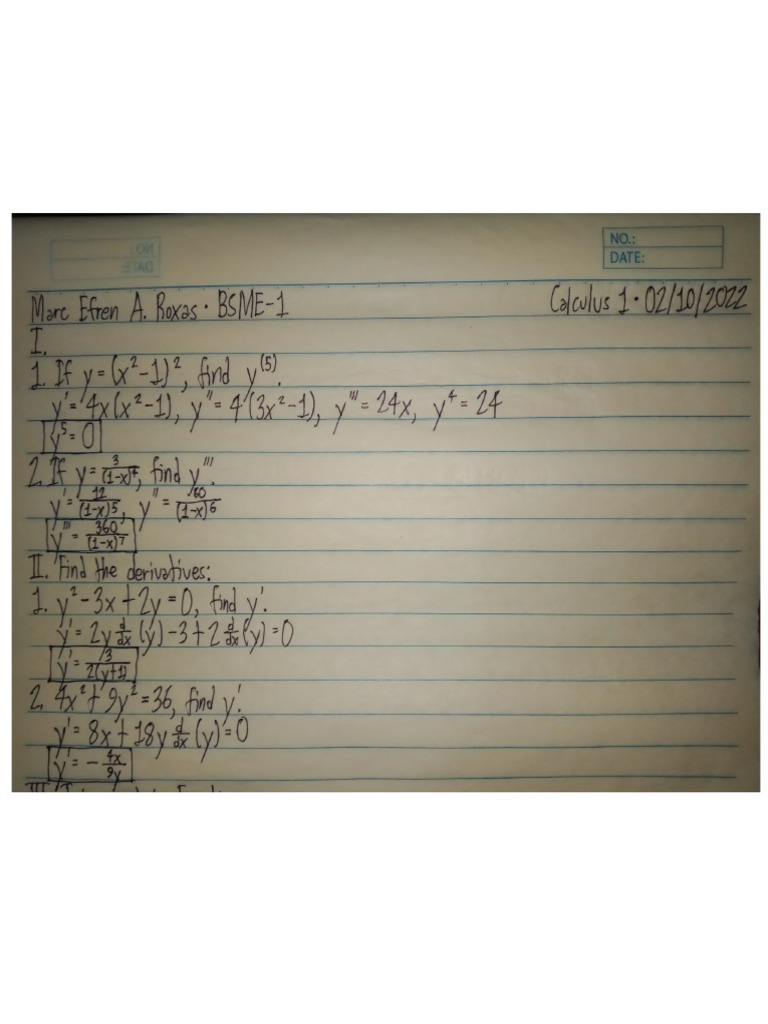 NO.:
DATE:
Marc Efren A. Roxas • BSME-1 Calculus 1 • 02/10/2022
I.
1. If y = (x² - 1)², find y⁽⁵⁾.
y' = 4x(x² - 1), y'' = 4(3x² - 1), y''' = 24x, y⁴ = 24
y⁵ = 0
2. If y = 3/(1-x)⁴, find y'''.
y' = 12/(1-x)⁵, y'' = 60/(1-x)⁶
y''' = 360/(1-x)⁷
II. Find the derivatives:
1. y² - 3x + 2y = 0, find y'.
y' = 2y d/dx (y) - 3 + 2 d/dx (y) = 0
y' = 3/2(y+1)
2. 4x² + 9y² = 36, find y'.
y' = 8x + 18y d/dx (y) = 0
y' = - 4x/9y